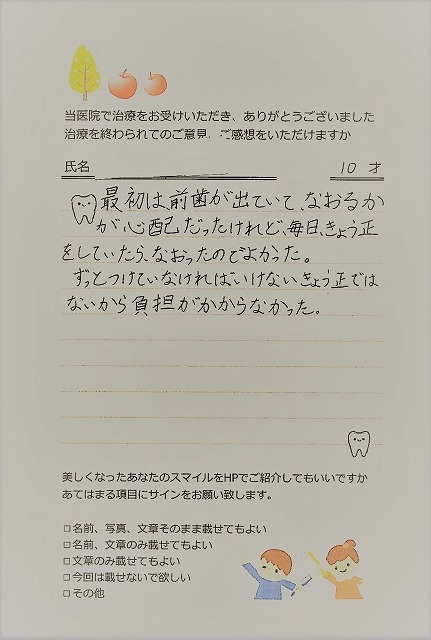 当医院で治療をお受けいただき、ありがとうございました
治療を終わられてのご意見、ご感想をいただけますか
氏名 10 才
最初は、前歯が出ていて、なおるか
が心配だったけれど、毎日、きょう正
をしていたら、なおったのでよかった。
ずっとつけていなければいけないきょう正では
ないから負担がかからなかった。
美しくなったあなたのスマイルをHPでご紹介してもいいですか
あてはまる項目にサインをお願い致します。
□名前、写真、文章そのまま載せてもよい
□名前、文章のみ載せてもよい
□文章のみ載せてもよい
□今回は載せないで欲しい
□その他